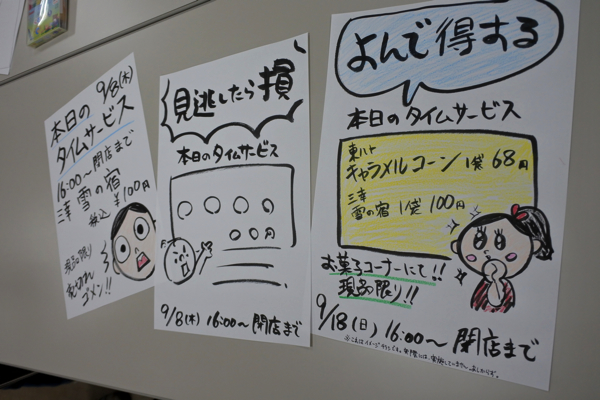 9/8(木)
本日の
タイムサービス
16:00～閉店まで
三幸 雪の宿
税込 ¥100円
現品限り
売切れ
ゴメン!!
見逃したら損
本日のタイムサービス
○○○○
○○円
9/8(木) 16:00～閉店まで
よんで得する
本日のタイムサービス
東ハト
キャラメルコーン 1袋 68円
三幸
雪の宿 1袋 100円
お菓子コーナーにて!!
現品限り!!
9/18(日) 16:00～閉店まで